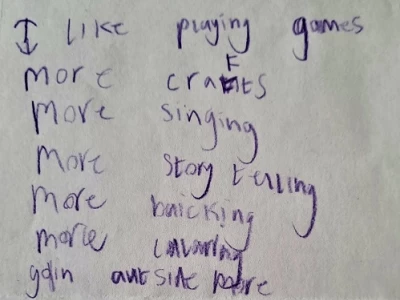 I like playing games
more crafts
More singing
More story telling
More baicking
more
goin outside more